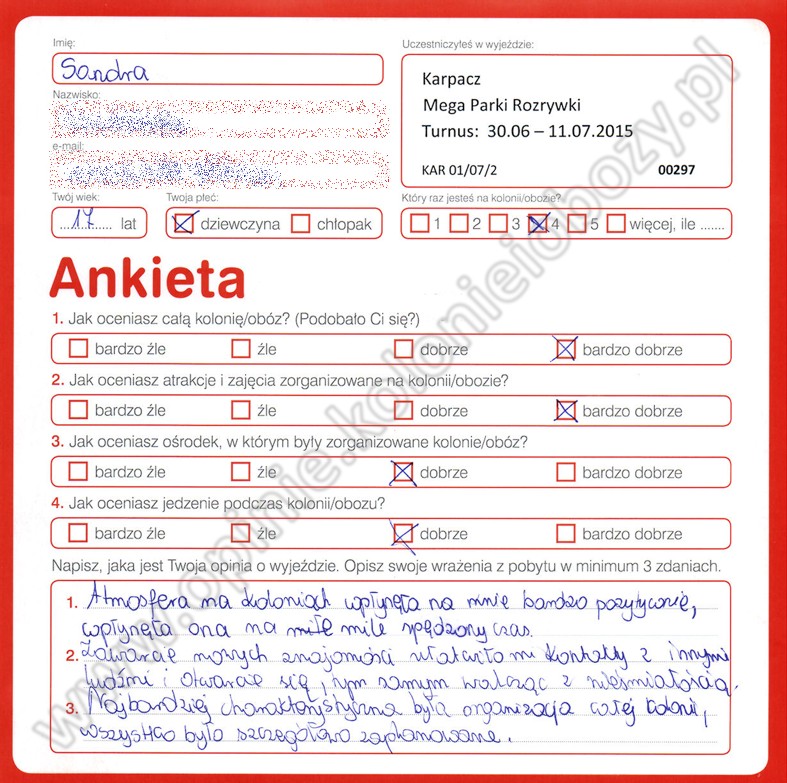 Imię:
Sandra
Nazwisko:
e-mail:
Twój wiek:
17 lat
Twoja płeć:
dziewczyna chłopak
Uczestniczyłeś w wyjeździe:
Karpacz
Mega Parki Rozrywki
Turnus: 30.06 – 11.07.2015
KAR 01/07/2 00297
Który raz jesteś na kolonii/obozie?
1 2 3 4 5 więcej, ile .......
Ankieta
1. Jak oceniasz całą kolonię/obóz? (Podobało Ci się?)
bardzo źle źle dobrze bardzo dobrze
2. Jak oceniasz atrakcje i zajęcia zorganizowane na kolonii/obozie?
bardzo źle źle dobrze bardzo dobrze
3. Jak oceniasz ośrodek, w którym były zorganizowane kolonie/obóz?
bardzo źle źle dobrze bardzo dobrze
4. Jak oceniasz jedzenie podczas kolonii/obozu?
bardzo źle źle dobrze bardzo dobrze
Napisz, jaka jest Twoja opinia o wyjeździe. Opisz swoje wrażenia z pobytu w minimum 3 zdaniach.
1. Atmosfera na koloniach wpłynęła na mnie bardzo pozytywnie,
wpłynęła ona na miłe mile spędzony czas.
2. Zawarcie nowych znajomości ułatwiło mi kontakty z innymi
ludźmi i otwarcie się, tym samym walcząc z nieśmiałością.
3. Najbardziej charakterystyczna była organizacja całej koloni,
wszystko było szczegółowo zaplanowane.
www.opinie.kolonieiobozy.pl